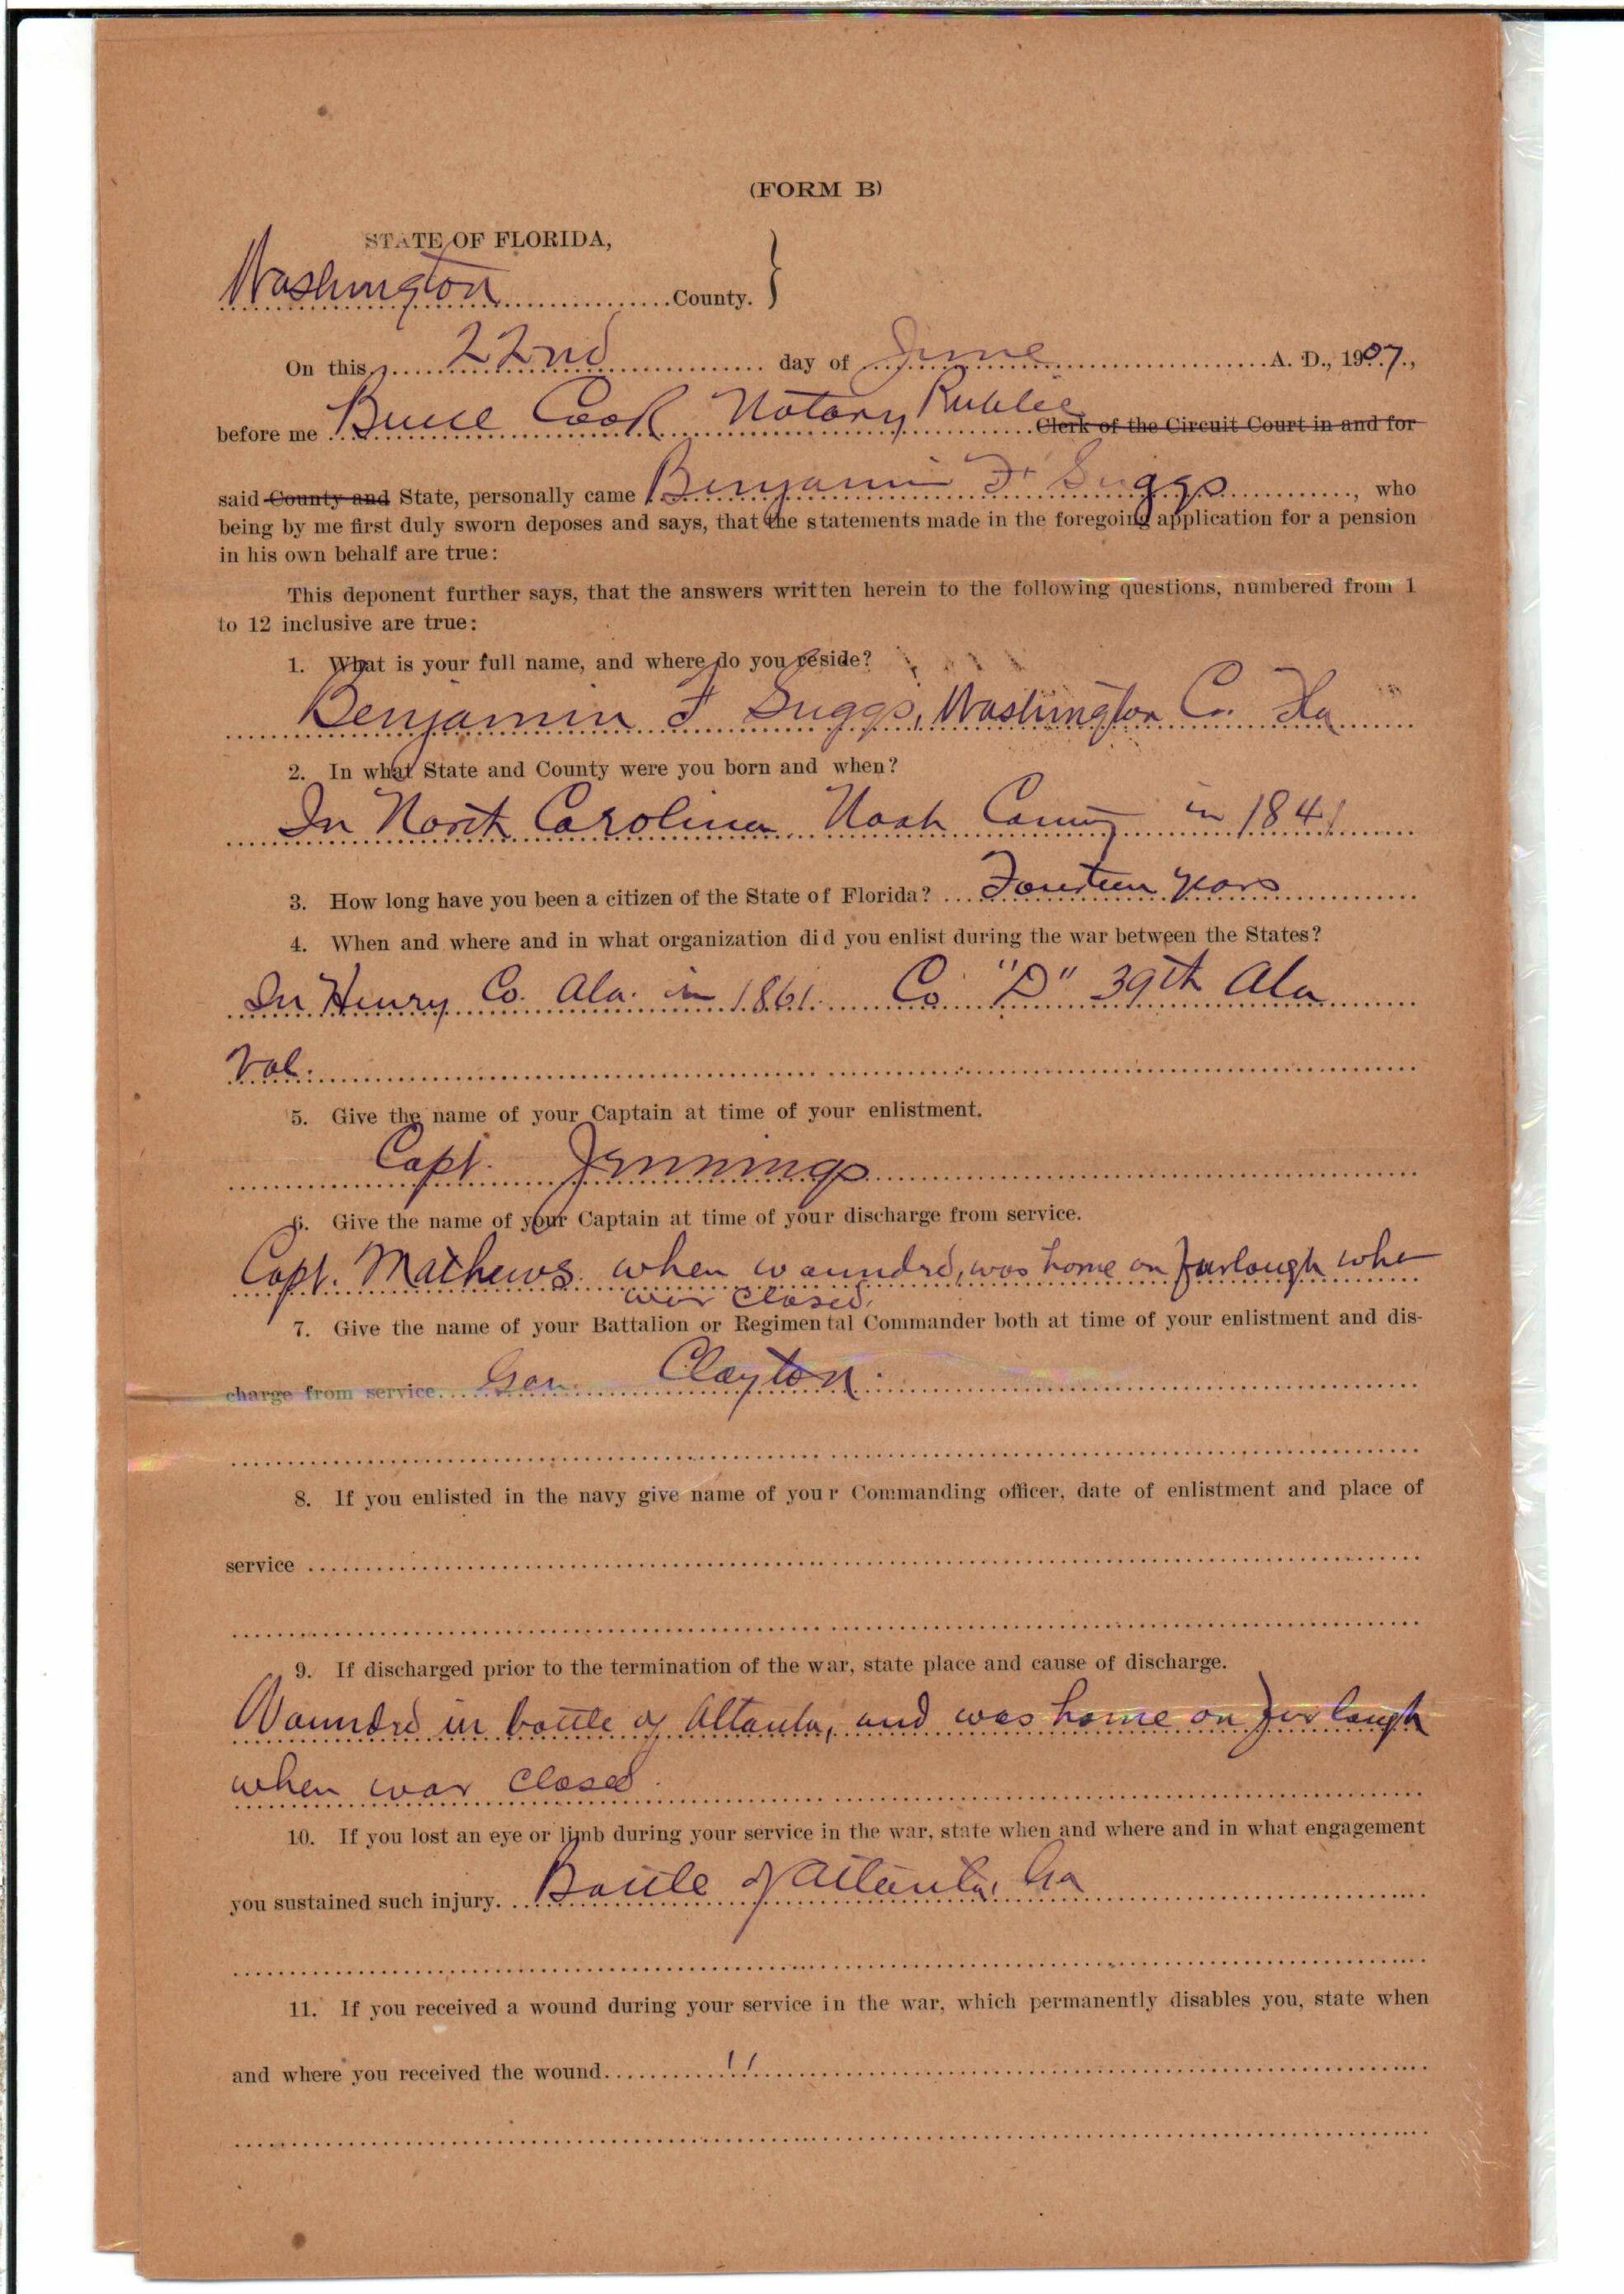 (FORM B)
STATE OF FLORIDA,
Washington County.
On this 22nd day of June A. D., 1907,
before me Bruce Cook Notary Public Clerk of the Circuit Court in and for
said County and State, personally came Benjamin F Suggs, who
being by me first duly sworn deposes and says, that the statements made in the foregoing application for a pension
in his own behalf are true:
This deponent further says, that the answers written herein to the following questions, numbered from 1
to 12 inclusive are true:
1. What is your full name, and where do you reside?
Benjamin F Suggs, Washington Co. Fla
2. In what State and County were you born and when?
In North Carolina Nash County in 1841
3. How long have you been a citizen of the State of Florida? Fourteen years
4. When and where and in what organization did you enlist during the war between the States?
In Henry Co. Ala. in 1861. Co "D" 39th Ala
Vol.
5. Give the name of your Captain at time of your enlistment.
Capt. Jennings
6. Give the name of your Captain at time of your discharge from service.
Capt. Mathews when wounded, was home on furlough whe
war closed.
7. Give the name of your Battalion or Regimental Commander both at time of your enlistment and dis-
charge from service. Gen Clayton.
8. If you enlisted in the navy give name of your Commanding officer, date of enlistment and place of
service
9. If discharged prior to the termination of the war, state place and cause of discharge.
Wounded in battle of Atlanta, and was home on furlough
when war closed.
10. If you lost an eye or limb during your service in the war, state when and where and in what engagement
you sustained such injury. Battle of Atlanta, Ga
11. If you received a wound during your service in the war, which permanently disables you, state when
and where you received the wound. "